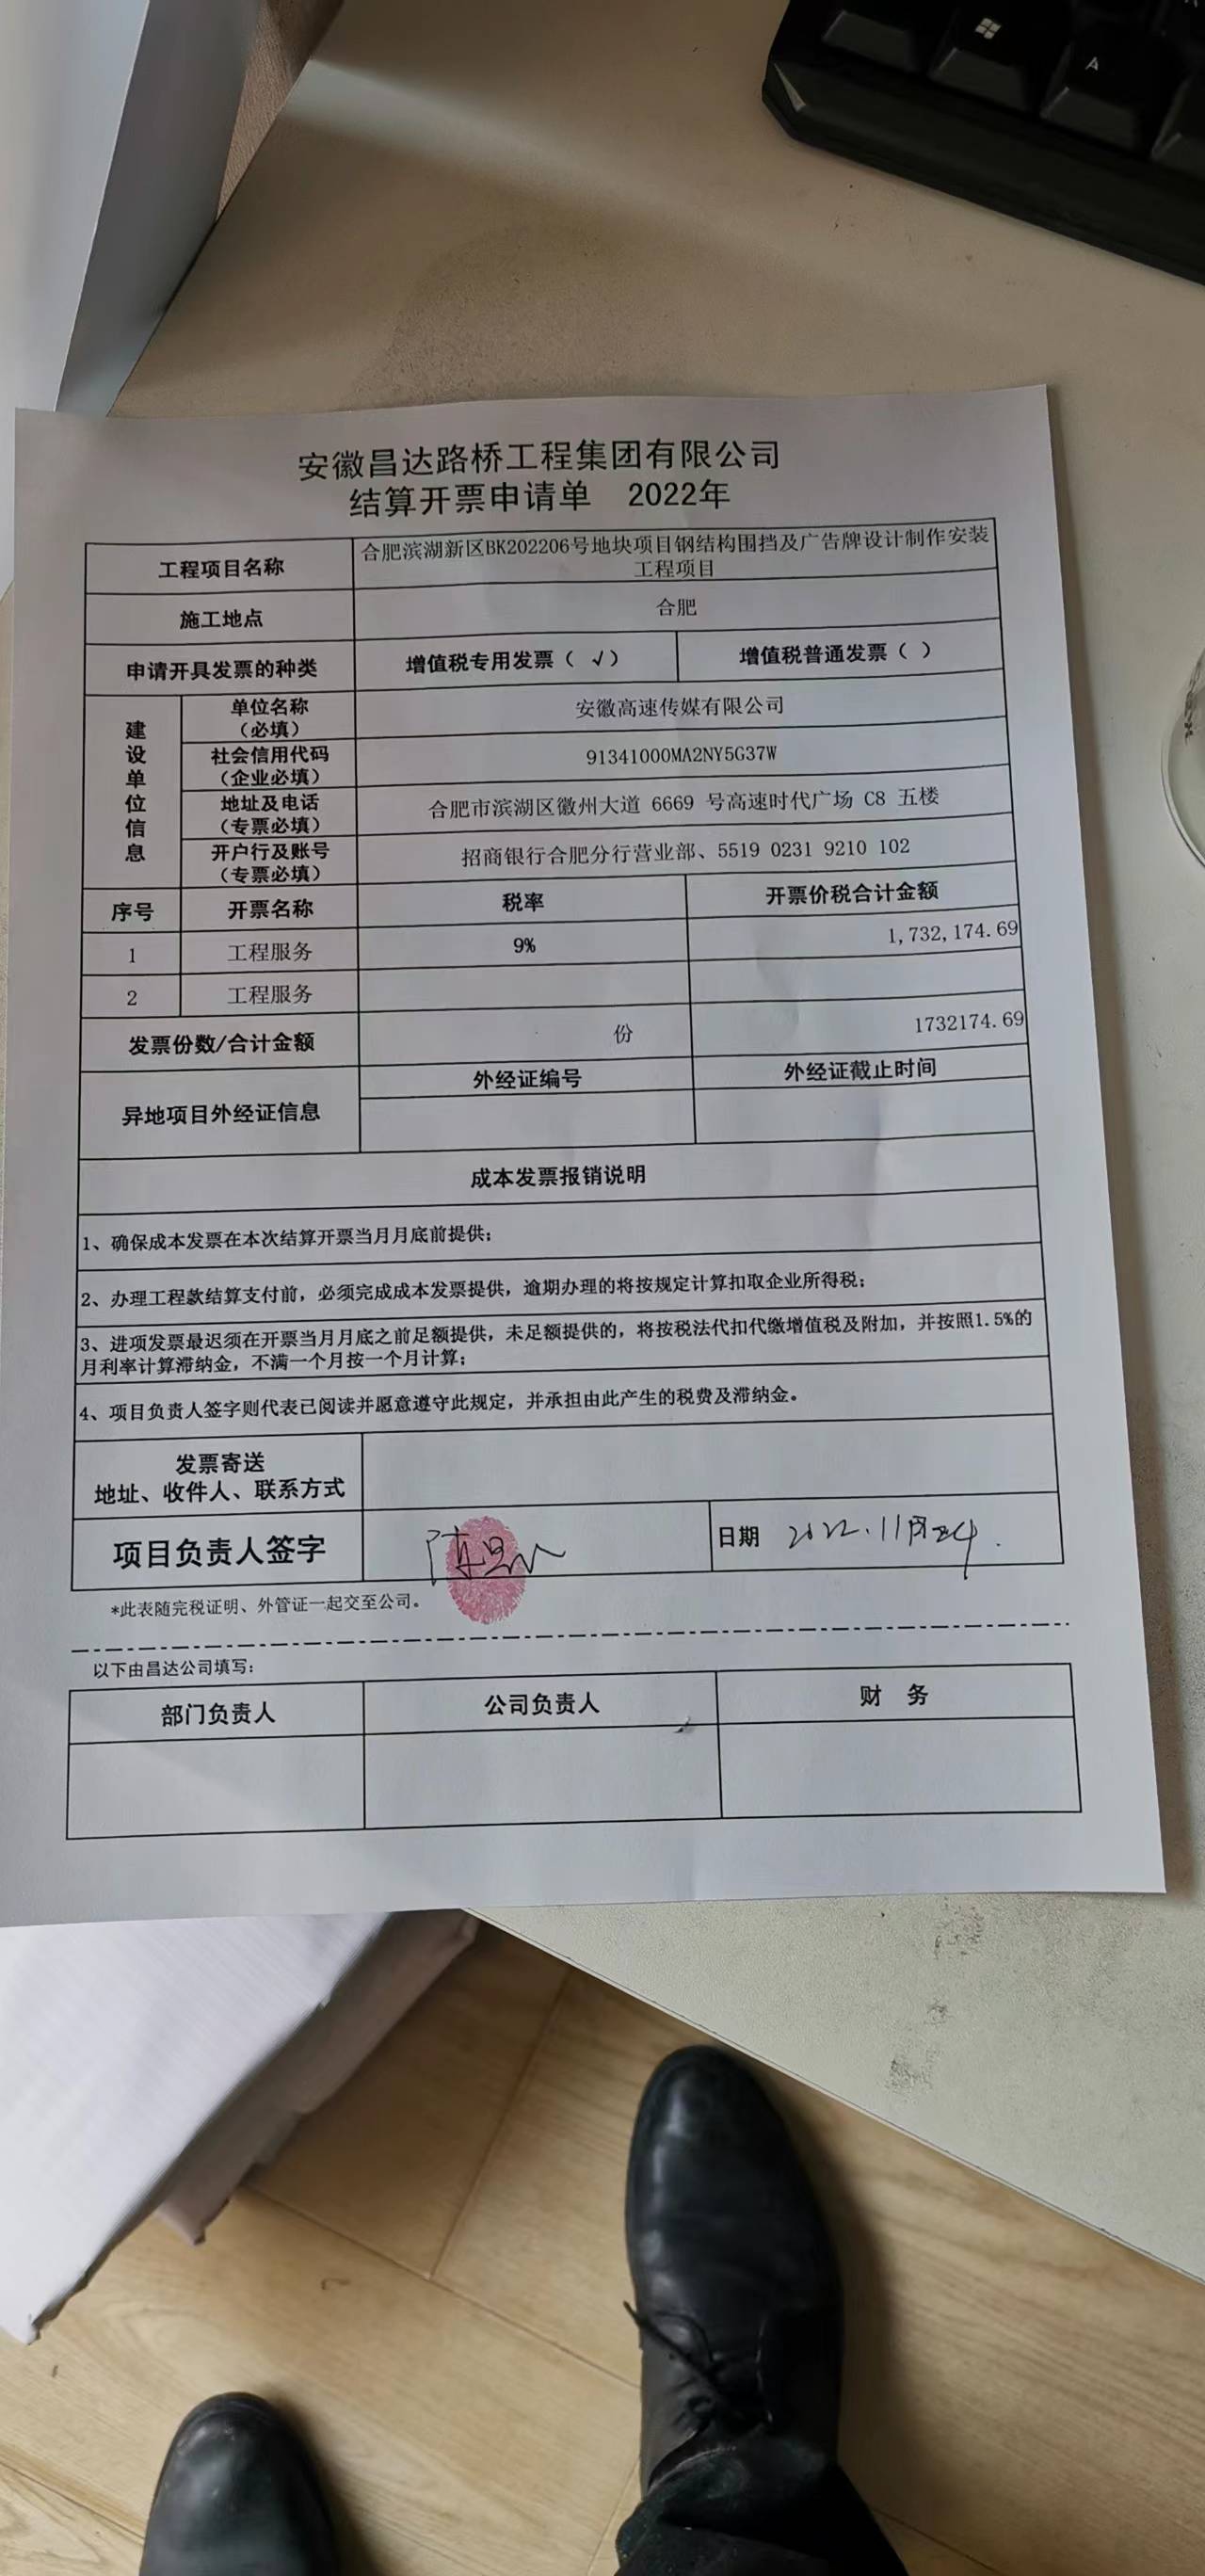 A
安徽昌达路桥工程集团有限公司
结算开票申请单 2022年
工程项目名称
合肥滨湖新区BK202206号地块项目钢结构围挡及广告牌设计制作安装
工程项目
施工地点
合肥
申请开具发票的种类
增值税专用发票（ √）
增值税普通发票（ ）
建设单位信息
单位名称
（必填）
安徽高速传媒有限公司
社会信用代码
（企业必填）
91341000MA2NY5G37W
地址及电话
（专票必填）
合肥市滨湖区徽州大道 6669 号高速时代广场 C8 五楼
开户行及账号
（专票必填）
招商银行合肥分行营业部、5519 0231 9210 102
序号 开票名称 税率 开票价税合计金额
1 工程服务 9% 1,732,174.69
2 工程服务
发票份数/合计金额 份 1732174.69
异地项目外经证信息
外经证编号 外经证截止时间
成本发票报销说明
1、确保成本发票在本次结算开票当月月底前提供；
2、办理工程款结算支付前，必须完成成本发票提供，逾期办理的将按规定计算扣取企业所得税；
3、进项发票最迟须在开票当月月底之前足额提供，未足额提供的，将按税法代扣代缴增值税及附加，并按照1.5%的
月利率计算滞纳金，不满一个月按一个月计算；
4、项目负责人签字则代表已阅读并愿意遵守此规定，并承担由此产生的税费及滞纳金。
发票寄送
地址、收件人、联系方式
项目负责人签字
日期 2022.11月24.
*此表随完税证明、外管证一起交至公司。
以下由昌达公司填写：
部门负责人 公司负责人 财 务